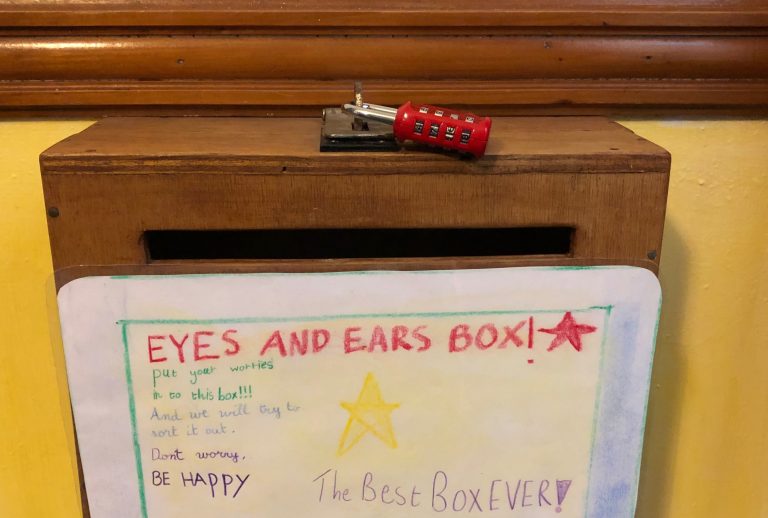 EYES AND EARS BOX!
put your worries
in to this box!!!
And we will try to
sort it out.
Dont worry,
BE HAPPY
The Best Box EVER!